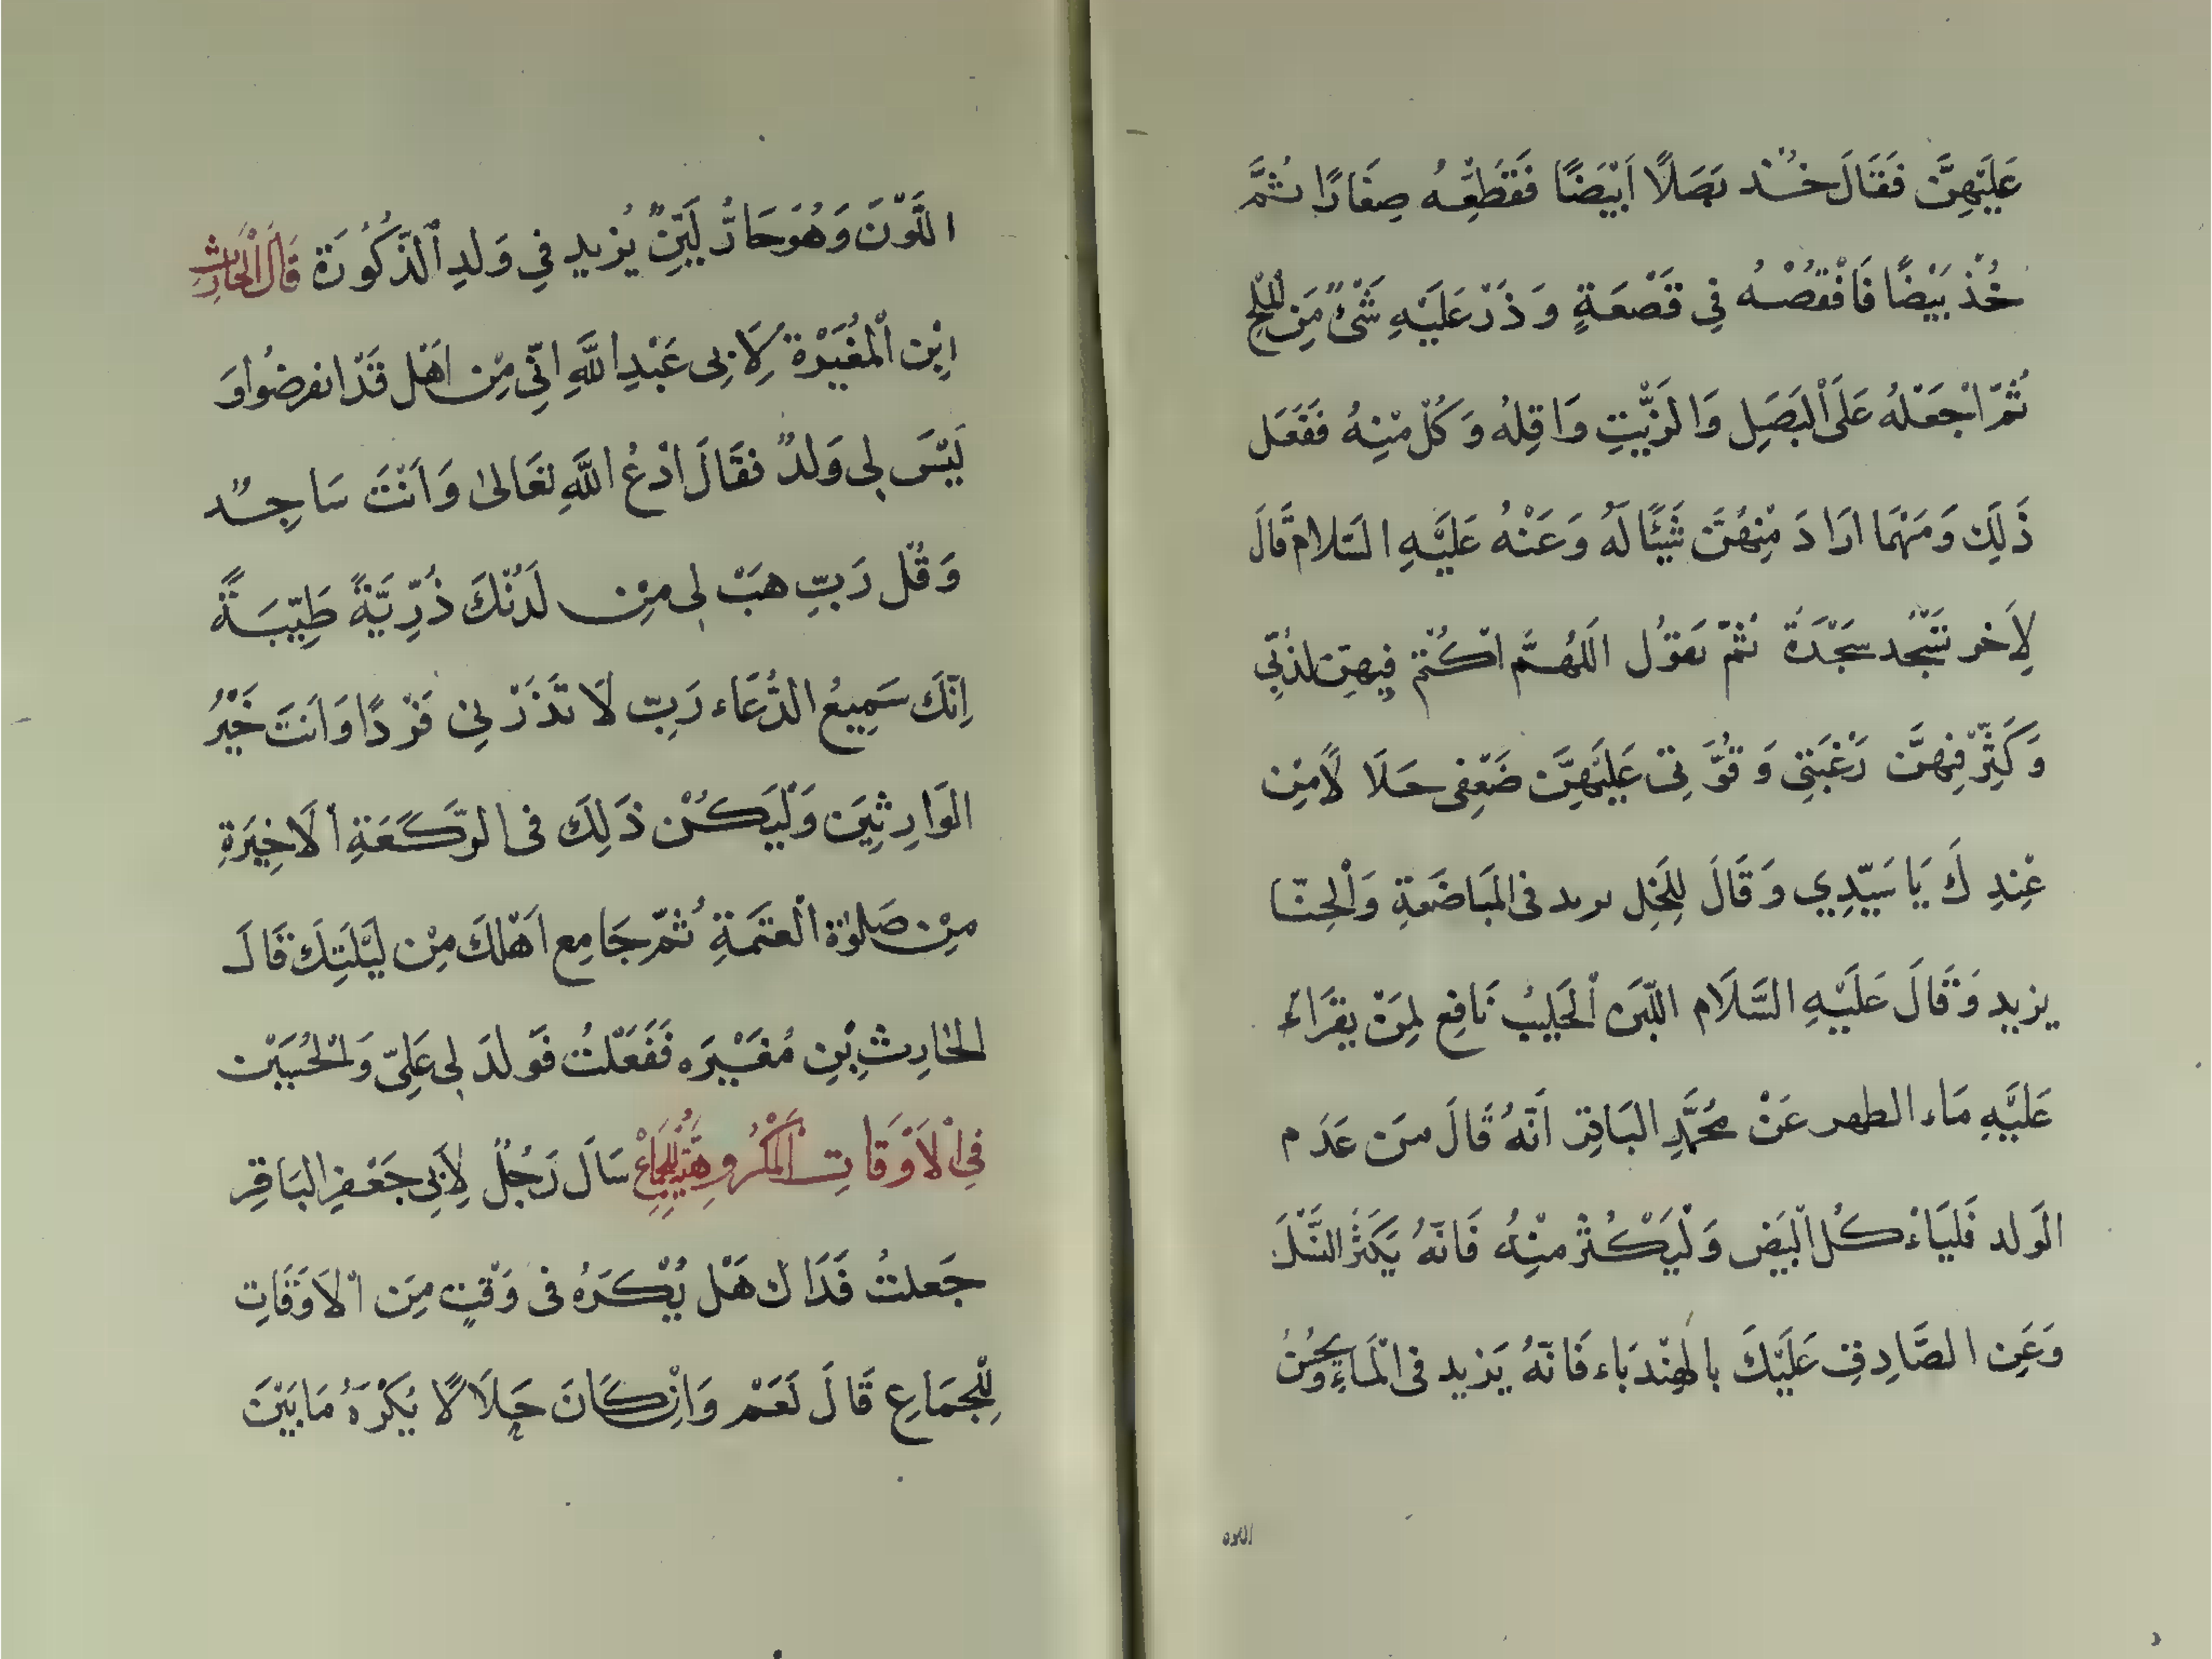 عَلَيْهِنَّ فَقَالَ خُذْ بَصَلًا اَبْيَضًا فَقَطِّعْهُ صِغَارًا ثُمَّ
خُذْ بَيْضًا فَافْقُصْهُ فِي قَصْعَةٍ وَذَرْ عَلَيْهِ شَئٌ مِنَ الْمِلْحِ
ثُمَّ اجْعَلْهُ عَلَى الْبَصَلِ وَالزَّيْتِ وَاقِلْهُ وَكُلْ مِنْهُ فَفَعَل
ذَلِكَ وَمَهْمَا ارَادَ مِنْهُنَّ شَيْئًا لَهُ وَعَنْهُ عَلَيْهِ السَّلَام قَالَ
لِاَخر تَسْجُد سَجْدَةً ثُمَّ تَقُوْل اَللهُمَّ اكْثُمْ فِيهِنَّ لذَّتِي
وَكَثِّرْ فِيهِنَّ رَغْبَتِي وَقُوَّتِي عَلَيْهِنَّ ضَعْفِى حَلَالًا مِنْ
عِنْدِكَ يَا سَيِّدِي وَقَالَ لِلْخَلِ يريد فى الْمَبَاضَعَةِ وَالْحِنَّا
يزيد وَقَالَ عَلَيْهِ السَّلَام اللَّبَن الْحَلِيبُ نَافِع لِمَنْ يَقْرَاءُ
عَلَيْهِ مَاء الظهر عَنْ مُحَمَّدِ البَاقِر اَنَّهُ قَالَ مَن عَدَم
الْوَلد فَلْيَاءْكُل الْبَيْض وَلْيَكْثُرْ مِنْهُ فَانَّهُ يَكَثِّرُ النَّسْلَ
وَعَنِ الصَّادِق عَلَيْكَ بِالْهِنْدَبَاء فَانَّهُ يَزيد فى الْمَاءِ وَيُحْسِنُ
اللون
اللَّوْنَ وَهُوَ حَارٌّ لَيِّنٌ يُزيد فِي وَلدِ الذُّكُورَة قَالَ الْحَارِث
اِبْن الْمُغَيْرَة لِاَبِى عَبْدِ اللهِ انِّي مِنْ اَهْل قَدْ انقرضُوا وَ
لَيْسَ لِى وَلدٌ فَقَالَ ادْعُ اللهَ تَعَالىٰ وَاَنْتَ سَاجِدٌ
وَقُلْ رَبِّ هَبْ لِى مِنْ لَدُنْكَ ذُرِّيَّةً طَيِّبَةً
اِنَّكَ سَمِيعُ الدُّعَاء رَبِّ لَا تَذَرْنِى فَرْدًا وَاَنتَ خَيْرُ
الْوَارِثِيَن وَلْيَكُنْ ذَلِكَ فى الرَّكْعَةِ الَاخِيْرَةِ
مِنْ صَلوٰة الْعَتَمَةِ ثُمَّ جَامِع اَهْلَكَ مِنْ لَيْلَتِكَ قَالَ
الحَارِث بْنِ مُغَيْرَه فَفَعَلْتُ فَولدَ لِى عَلِىّ وَالْحُسَيْن
فِى الْاَوْقَاتِ الْمَكْرُوهَةِ لِلْجِمَاعْ سَالَ رَجُلٌ لِاَبِى جَعْفِر البَاقِر
جَعلتُ فَدَاك هَلْ يُكْرَهُ فى وَقْتٍ مِنَ الْاَوَقَاتِ
لِلْجِمَاعِ قَالَ نَعَمْ وَانْ كَانَ حَلَالًا يَكْرَهُ مَا بَيْنَ